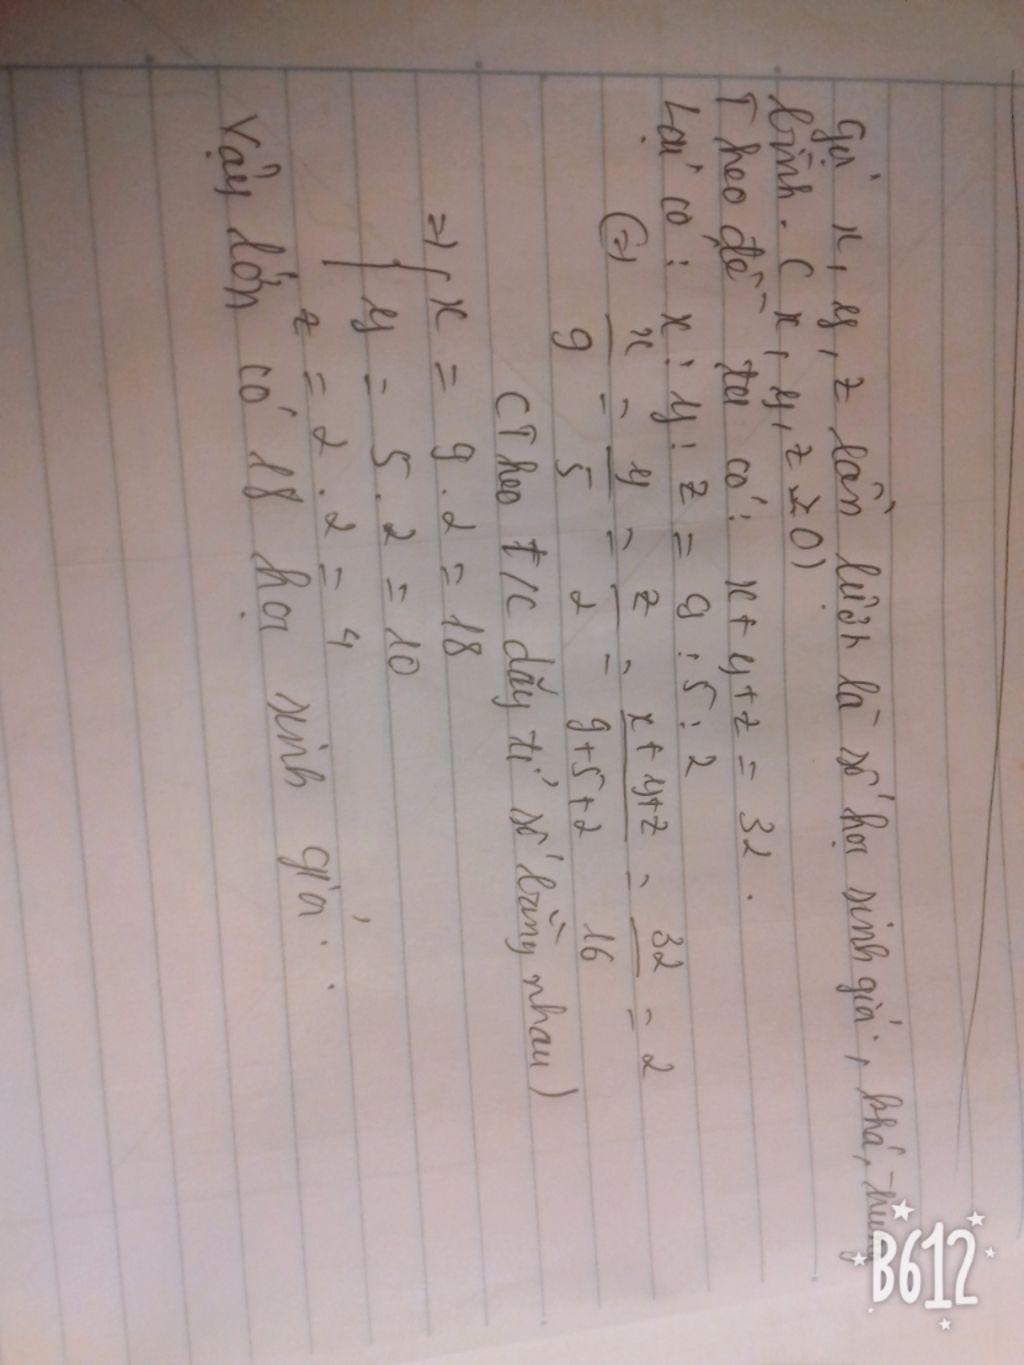 Gọi x, y, z lần lượt là số học sinh giỏi, khá, trung
bình. (x, y, z > 0)
Theo đề ta có: x + y + z = 32.
Lại có: x : y : z = 9 : 5 : 2
(=) x/9 = y/5 = z/2 = x+y+z/9+5+2 = 32/16 = 2
(Theo t/c dãy tỉ số bằng nhau)
=> { x = 9 . 2 = 18
y = 5 . 2 = 10
z = 2 . 2 = 4
Vậy lớn có 18 học sinh giỏi.
B612